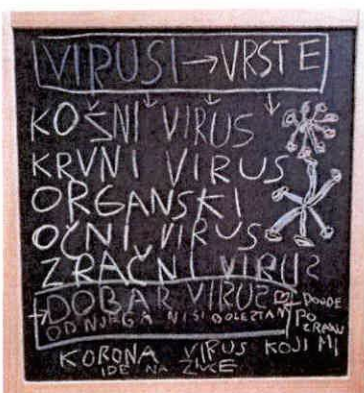 VIRUSI → VRSTE
KOŽNI VIRUS
KRVNI VIRUS
ORGANSKI
OČNI VIRUS
ZRAČNI VIRUS
→ DOBAR VIRUS
OD NJEGA NISI BOLESTAN
DOĐE
PO
ZRAKU
KORONA VIRUS KOJI MI
IDE NA ŽIVCE